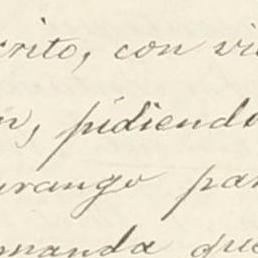 crito, con vi
n, pidiendo
urango par
manda que